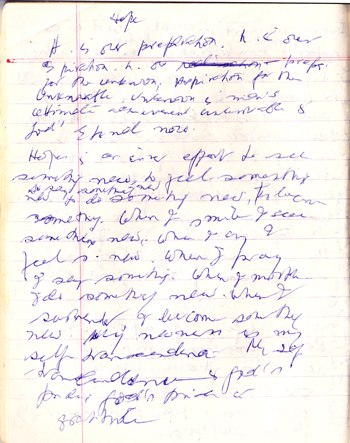 Hope
H. is our preparation. H. is our
aspiration. H. our prepa.
for the unknown, aspiration for the
Unknowable. Unknown is man's
ultimate achievement unknowable is
God's now.
Hope is an inner effort to see
something new, to feel something
to say something new
new to do something new, to become
something. When I smile I see
something new. When I cry I
feel s. new. When I pray
I say something. When I meditate
I do something new. When I
surrender I become something
new. My newness is my
self transcendence. My self
transcendence is God's
pride. God's pride is
gratitude